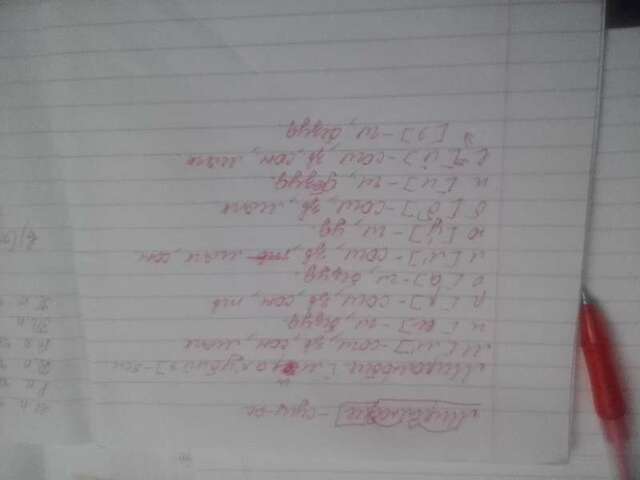 Миролюбие - сущ-ое
Миролюбие [м'ирал'убий'э] - 5сл
М [м'] - согл, зв, сон, мягк
и [и] - гл, безуд.
р [р] - согл, зв, сон, тв
о [а] - гл, безуд.
л [л'] - согл, зв, тв мягк, сон
ю [у́] - гл, уд.
б [б'] - согл, зв, мягк
и [и] - гл, безуд.
е [й'] - согл, зв, сон, мягк.
[э] - гл, безуд
И п
Р п
Д п
В п
Т п
П п